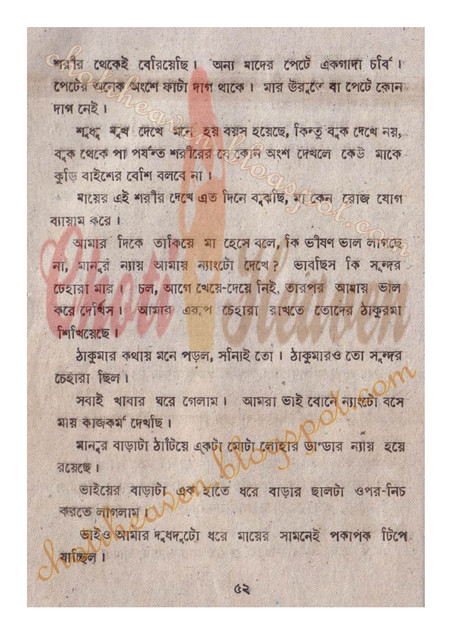 শরীর থেকেই বেরিয়েছি। অন্য মাদের পেটে একগাদা চর্বি।
পেটের অনেক অংশে ফাটা দাগ থাকে। মার উরুতে বা পেটে কোন
দাগ নেই।
শুধু মুখ দেখে মনে হয় বয়স হয়েছে, কিন্তু বুক দেখে নয়,
বুক থেকে পা পর্যন্ত শরীরের যে কোন অংশ দেখলে কেউ মাকে
কুড়ি বাইশের বেশি বলবে না।
মায়ের এই শরীর দেখে এত দিনে বুঝছি, মা কেন রোজ যোগ
ব্যায়াম করে।
আমার দিকে তাকিয়ে মা হেসে বলে, কি ভীষণ ভাল লাগছে
না, মানুর ন্যায় আমায় ন্যাংটো দেখে? ভাবছিস কি সুন্দর
চেহারা মার। চল, আগে খেয়ে-দেয়ে নিই, তারপর আমায় ভাল
করে দেখিস। আমার এরূপ চেহারা রাখতে তোদের ঠাকুরমা
শিখিয়েছে।
ঠাকুমার কথায় মনে পড়ল, সত্যিই তো। ঠাকুমারও তো সুন্দর
চেহারা ছিল।
সবাই খাবার ঘরে গেলাম। আমরা ভাই বোনে ন্যাংটো বসে
মায় কাজকর্ম দেখছি।
মানুর বাড়াটা ঠাটিয়ে একটা মোটা লোহার ডান্ডার ন্যায় হয়ে
রয়েছে।
ভাইয়ের বাড়াটা এক হাতে ধরে বাড়ার ছালটা ওপর-নিচ
করতে লাগলাম।
ভাইও আমার দুধদুটো ধরে মায়ের সামনেই পকাপক টিপে
যাচ্ছিল।
৫২
Choti Heaven
chotiheaven.blogspot.com
chotiheaven.blogspot.com